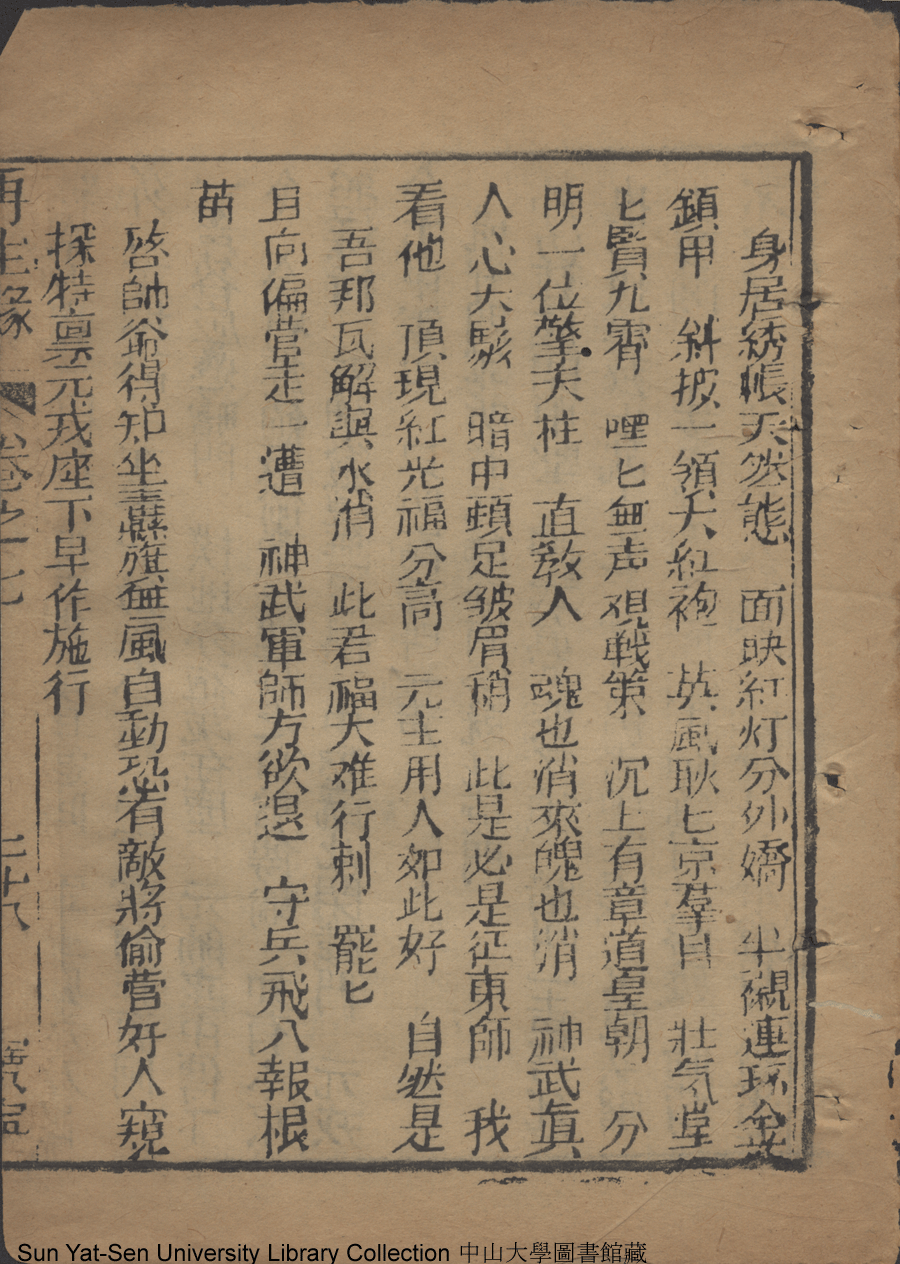 身居綉帳天然態　面映紅灯分外嬌　半襯連环金
鎖甲　斜披一領大紅袍　英風耿匕京羣目　壯氣堂
匕賢九霄　嘿匕無声观戰策　沉上有章道皇朝　分
明一位擎天柱　直教人　魂也消來魄也消　神武眞
人心大駭　暗中頓足皺眉稍　此是必是征東師　我
看他　頂現紅光福分高　元主用人如此好　自然是
吾邦瓦解與氷消　此君福大难行刺　罷匕
且向偏营走一遭　神武軍師方欲退　守兵飛入報根
苗
啓帥爺得知坐纛旗無風自動恐有敵將偷营好人窺
探特禀元戎座下早作施行
再生緣　卷之七　二十八
Sun Yat-Sen University Library Collection 中山大學圖書館藏